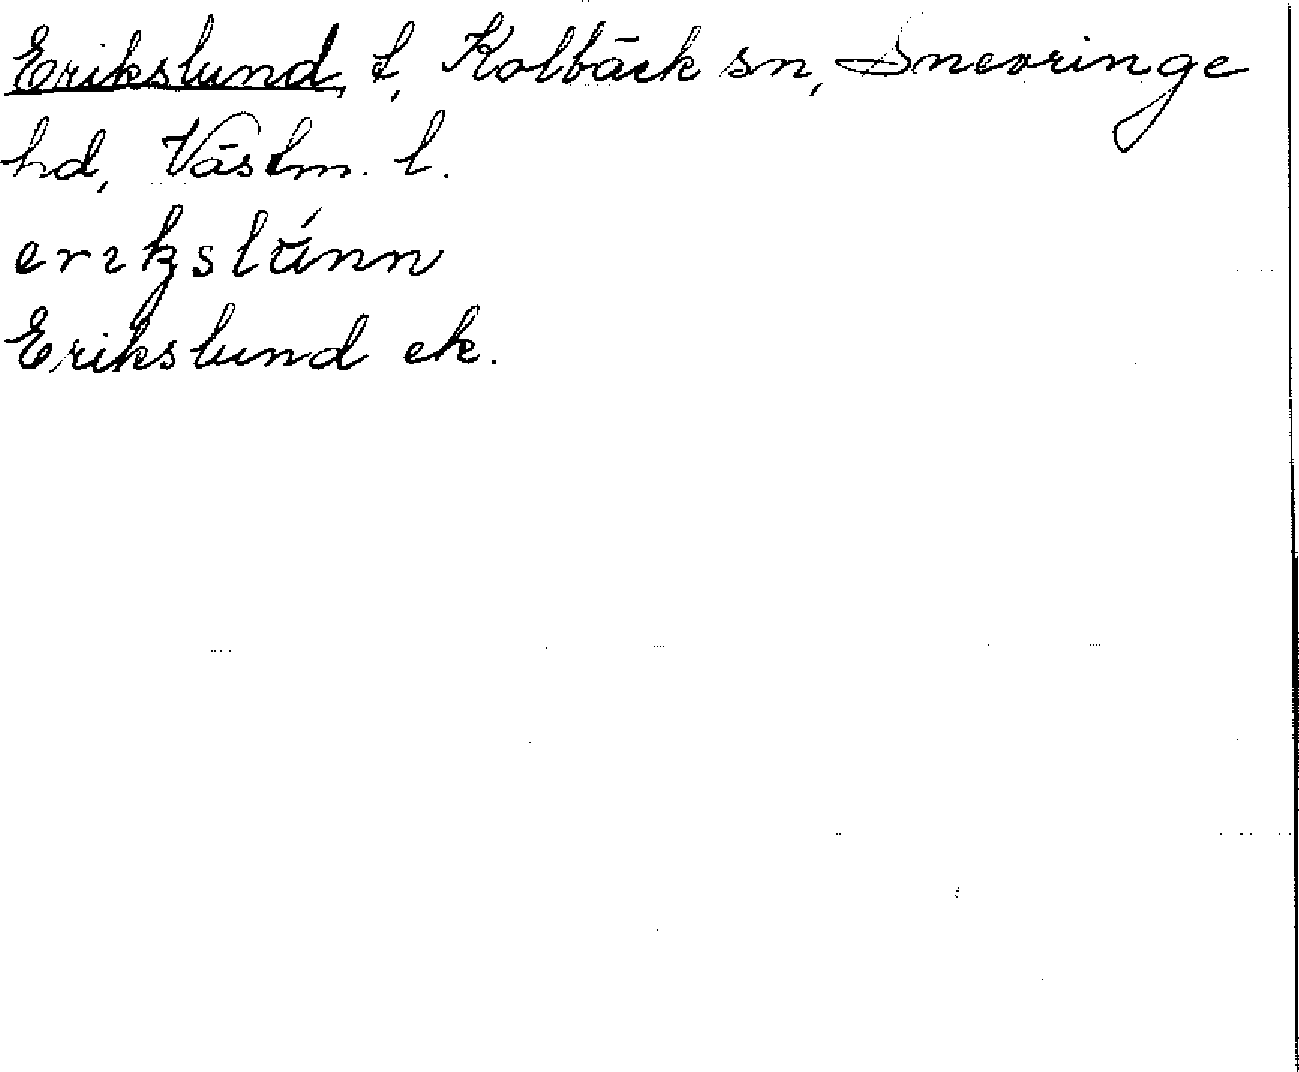 Erikslund t, Kolbäck sn, Snevringe
hd, Västm. l.
erikslúnn
Erikslund ek.